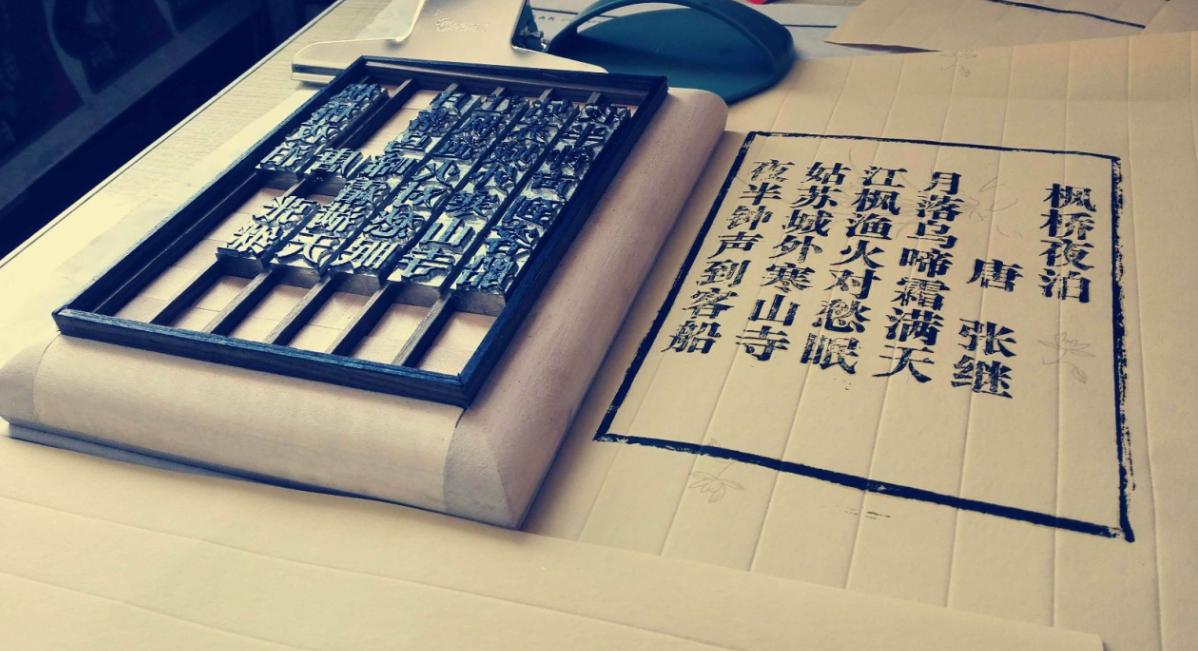 枫桥夜泊
唐 张继
月落乌啼霜满天
江枫渔火对愁眠
姑苏城外寒山寺
夜半钟声到客船